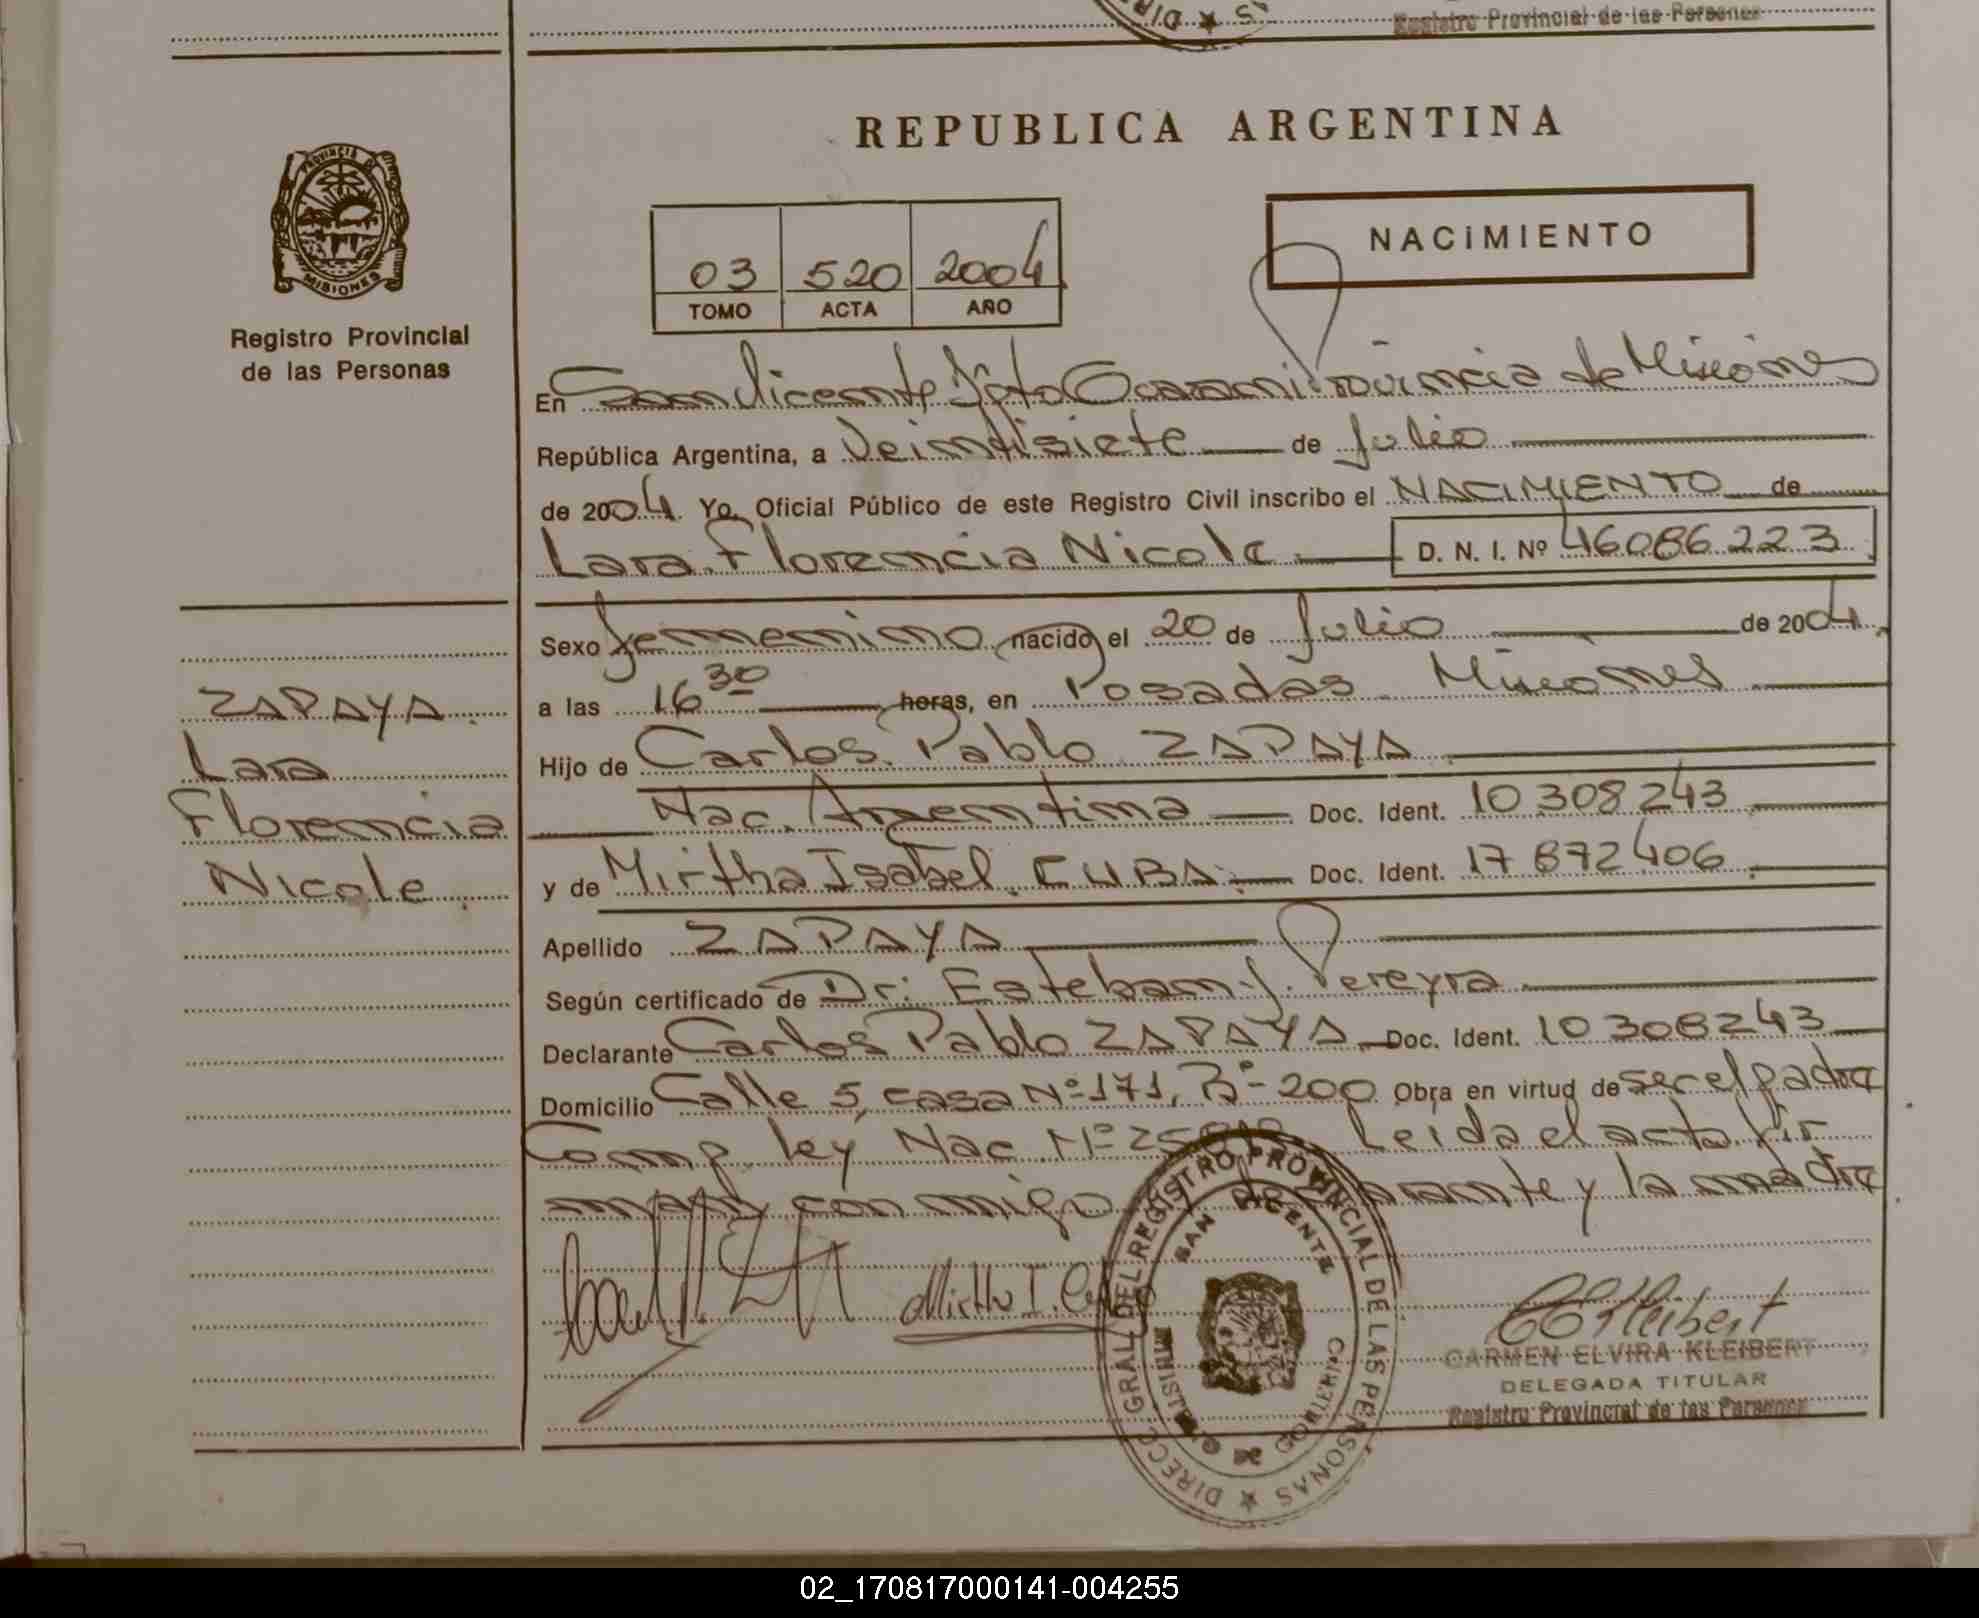 Registro Provincial de las Personas
REPUBLICA ARGENTINA
NACIMIENTO
03 520 2004
TOMO ACTA AÑO
PROVINCIA DE
MISIONES
Registro Provincial
de las Personas
En San Vicente Dpto Guaraní Provincia de Misiones
República Argentina, a Veintisiete de Julio
de 2004 Yo, Oficial Público de este Registro Civil inscribo el NACIMIENTO de
Lara Florencia Nicole D. N. I. Nº 46086223
Sexo femenino nacido el 20 de Julio de 2004
a las 16 30 horas, en Posadas Misiones
Hijo de Carlos Pablo ZAPAYA
Nac. Argentina Doc. Ident. 10308243
y de Mirtha Isabel CUBA Doc. Ident. 17872406
Apellido ZAPAYA
Según certificado de Dr: Esteban J. Pereyra
Declarante Carlos Pablo ZAPAYA Doc. Ident. 10308243
Domicilio Calle 5, casa Nº 171, Bº 200 Obra en virtud de ser el padre
Comp. ley Nac Nº Leida el acta fir
man conmigo y la madre
ZAPAYA
Lara
Florencia
Nicole
Mirtha I.
CEKleibert
CARMEN ELVIRA KLEIBERT
DELEGADA TITULAR
Registro Provincial de las Personas
DIRECC GRAL DEL REGISTRO PROVINCIAL DE LAS PERSONAS
SAN VICENTE
MINISTERIO DE GOBIERNO
02_170817000141-004255